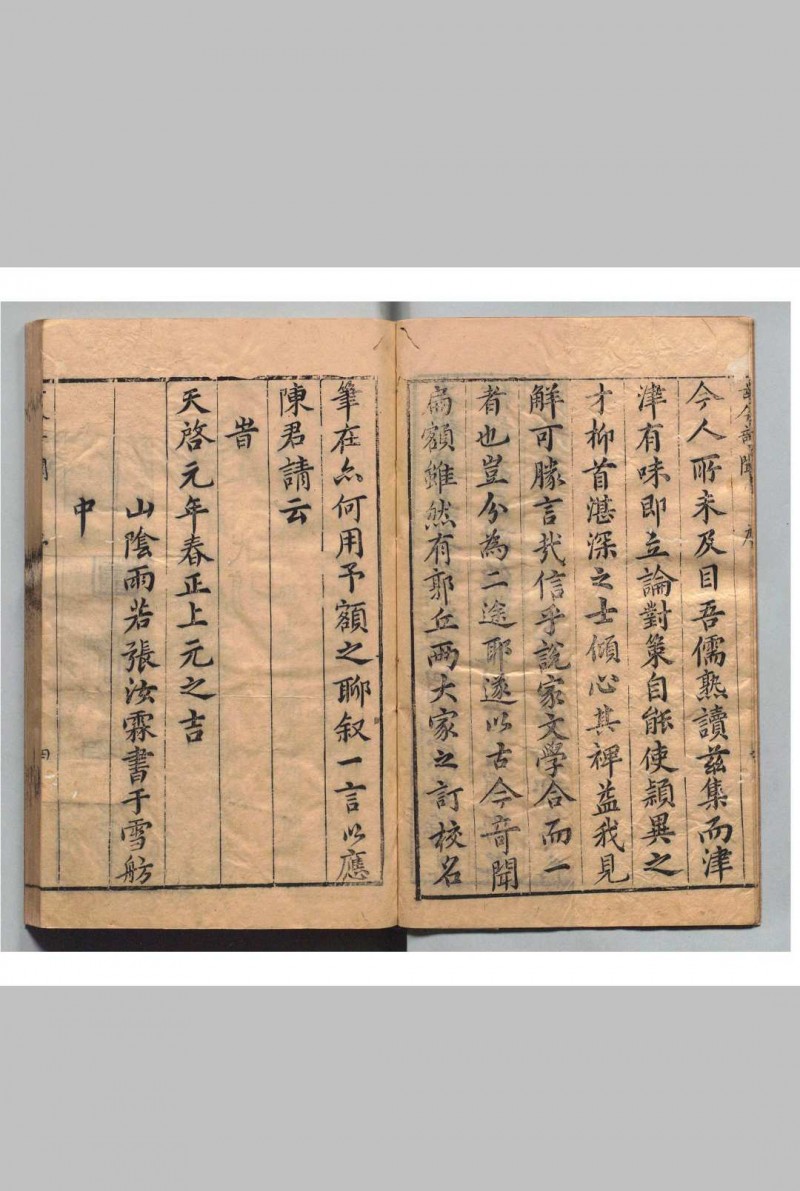 今人所未及目吾儒熟讀兹集而津
津有味即立論對策自能使穎異之
才抑首湛深之士傾心其裨益我見
解可勝言哉信乎說家文學合而一
者也豈分為二途耶遂以古今竒聞
為額雖然有郭丘兩大家之訂校名
筆在亦何用予額之聊叙一言以應
陳君請云
旹
天啓元年春正上元之吉
山陰雨若張汝霖書于雪舫
中